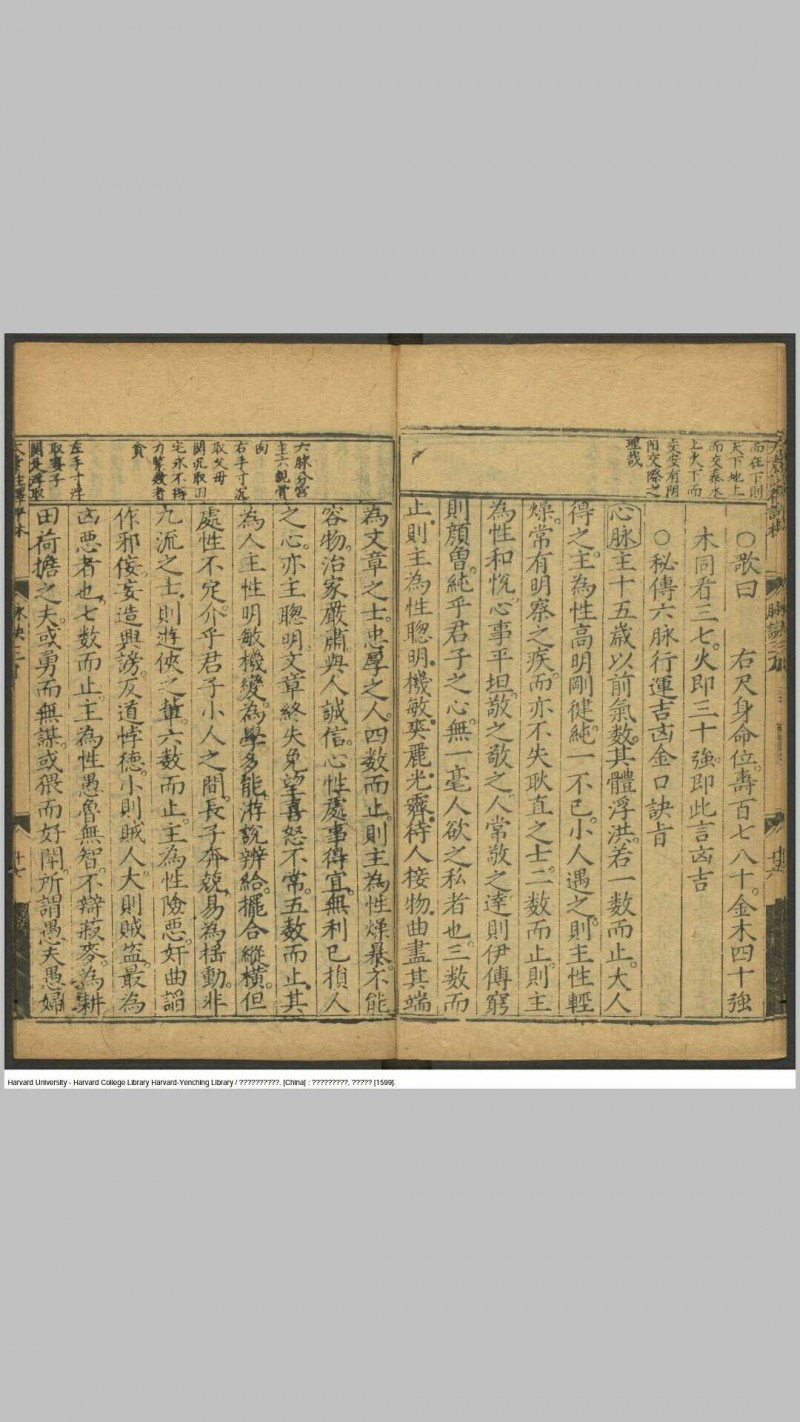 而在下則
天下地上
而交泰水
上火下而
交安有陰
陽交際之
理哉
○歌曰　右尺身命位壽百七八十金木四十強
木同看三七火即三十強即此言凶吉
○秘傳六脉行運吉凶金口訣旨
心脉主十五歲以前氣數其體浮洪若一數而止大人
得之主為性高明剛健純一不已小人遇之則主性輕
燥常有明察之疾而亦不失耿直之士二數而止則主
為性和悅心事平坦敬之敬之人常敬之達則伊傅窮
則顏曾純乎君子之心無一毫人欲之私者也三數而
止則主為性聰明機敏奕麗光霽待人接物曲盡其端
六脉分宮
主六親貫
向
右手寸沉
取父母
関沉取田
宅水不得
力繁數者
貧
左手寸浮
取妻子
為文章之士忠厚之人四數而止則主為性燥暴不能
容物治家嚴肅與人誠信心性處事得宜無利已損人
之心亦主聰明文章終失免望喜怒不常五數而止其
為人主性明敏機變為學多能游說辨給擺合縱橫但
處性不定介乎君子小人之間長子奔兢易為揺動非
九流之士則遊俠之輩六數而止主為性險惡奸曲謟
作邪佞妄造與謗友道悖德小則賊人大則賊盜最為
凶惡者也七數而止主為性愚魯無智不辯菽麥為耕
田荷擔之夫或勇而無謀或猥而好閗所謂愚夫愚婦
Harvard University - Harvard College Library Harvard-Yenching Library / ??????????. [China] : ?????????, ????? [1599].